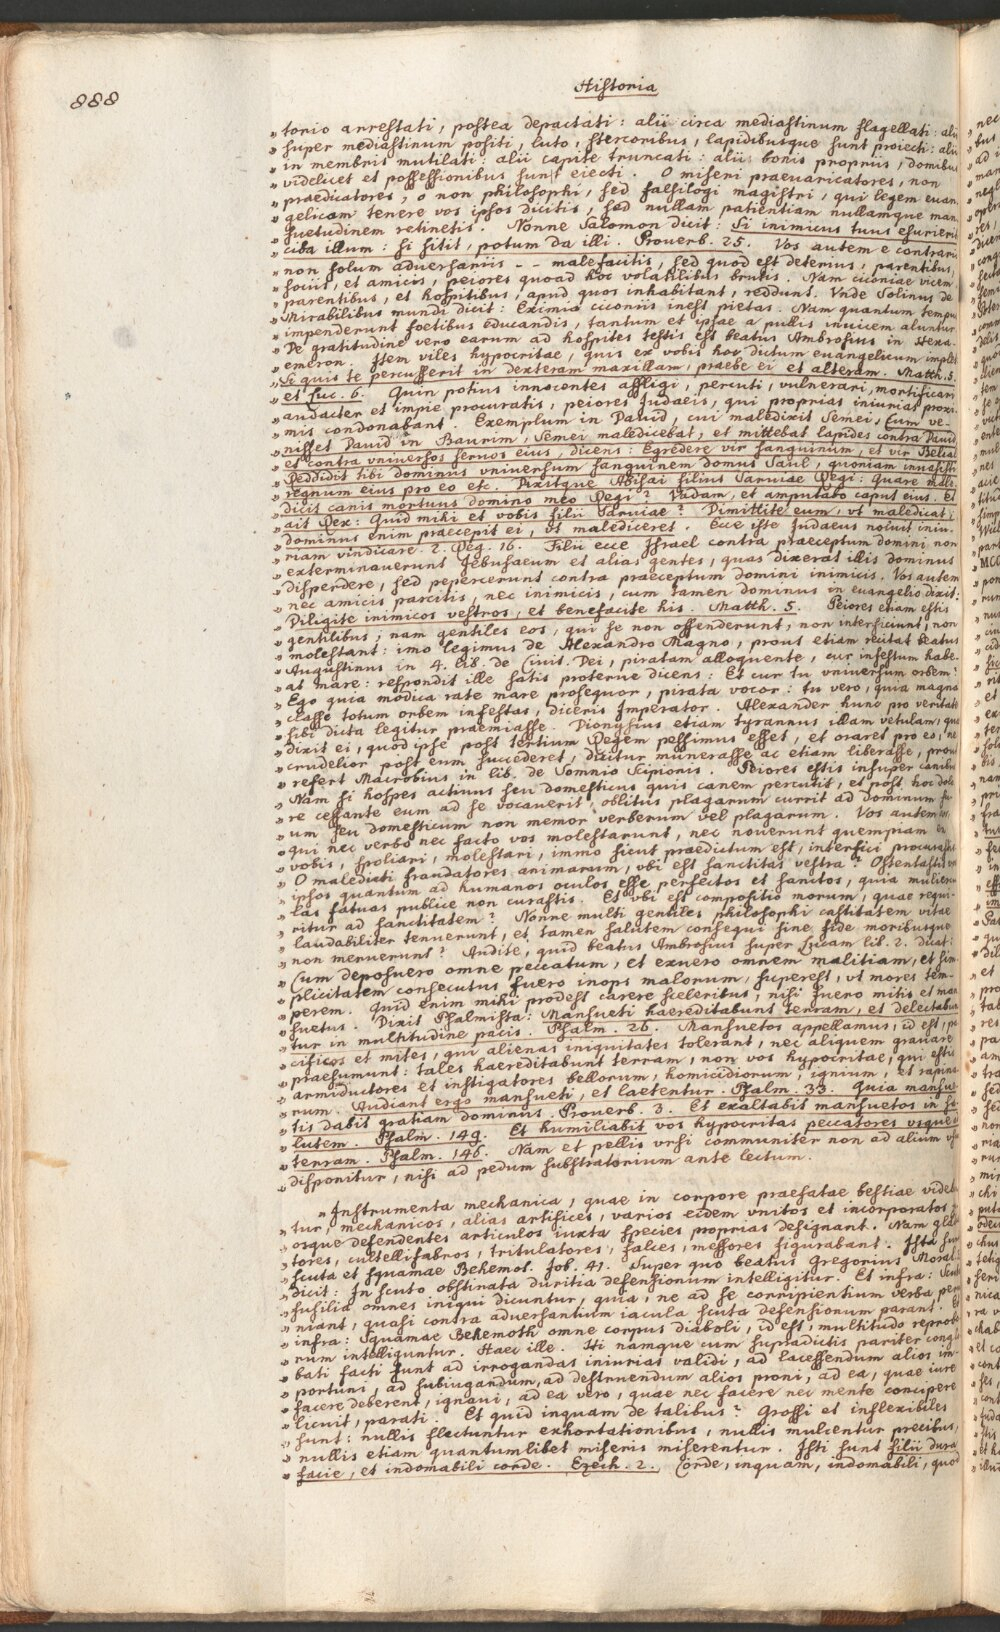 888
Historia
„torio arrestati, postea depactati: alii circa mediastinum flagellati: alii
„super mediastinum positi, luto, stercoribus, lapidibusque sunt proiecti: alii
„in membris mutilati: alii capite truncati: alii bonis propriis, domibus
„videlicet et possessionibus sunt eiecti. O miseri praevaricatores, non
„praedicatores, o non philosophi, sed falsilogi magistri, qui legem euan
„gelicam tenere vos ipsos dicitis, sed nullam patientiam nullamque man
„suetudinem retinetis. Nonne Salomon dicit: Si inimicus tuus esurierit
„ciba illum: si sitit, potum da illi. Prouerb. 25. Vos autem e contrario
„non solum aduersariis -- malefacitis, sed quod est deterius, parentibus,
„sociis, et amicis, peiores quoad hoc volatilibus brutis. Nam ciconiae vicem
„parentibus, et hospitibus, apud quos inhabitant, reddunt. Vnde Solinus de
„Mirabilibus mundi dicit: Eximia ciconiis inest pietas. Nam quantum tempus
„impenderunt foetibus educandis, tantum et ipsae a pullis inuicem aluntur
„De gratitudine vero earum ad hospites testis est beatus Ambrosius in Hexa-
„emeron. Item viles hypocritae, quis ex vobis hoc dictum euangelicum implet
„Si quis te percusserit in dexteram maxillam, praebe ei et alteram. Matth. 5.
„et Luc. 6. Quin potius innocentes affligi, percuti, vulnerari, mortificari
„audacter et impie procuratis, peiores Judaeis, qui proprias iniurias proxi-
„mis condonabant. Exemplum in Dauid, cui maledixit Semei, Cum ve-
„nisset Dauid in Baurim, Semei maledicebat, et mittebat lapides contra Dauid
„et contra vniuersos seruos eius, dicens: Egredere vir sanguinum, et vir Belial
„Reddidit tibi dominus vniuersum sanguinem domus Saul, quoniam inuasisti
„regnum eius pro eo etc. Dixitque Abisai filius Saruiae Regi: Quare male-
„dicit canis mortuus domino meo Regi? Vadam, et amputabo caput eius. Et
„ait Rex: Quid mihi et vobis filii Saruiae? Dimittite eum, vt maledicat;
„dominus enim praecepit ei, vt malediceret. Ecce iste Judaeus noluit iniu-
„riam vindicare. 2. Reg. 16. Filii ecce Israel contra praeceptum domini non
„exterminauerunt Jebusaeum et alias gentes, quas dixerat illis dominus
„disperdere, sed pepercerunt contra praeceptum domini inimicis. Vos autem
„nec amicis parcitis, nec inimicis, cum tamen dominus in euangelio dixit:
„Diligite inimicos vestros, et benefacite his. Matth. 5. Peiores etiam estis
„gentilibus; nam gentiles eos, qui se non offenderunt, non interficiunt, non
„molestant: imo legimus de Alexandro Magno, prout etiam recitat beatus
„Augustinus in 4. Lib. de Ciuit. Dei, piratam alloquente, cur infestum habe-
„at mare: respondit ille satis proterue dicens: Et cur tu vniuersum orbem?
„Ego quia modica rate mare prosequor, pirata vocor: tu vero, quia magna
„classe totum orbem infestas, diceris Imperator. Alexander hunc pro veritate
„sibi dicta legitur praemiasse. Dionysius etiam tyrannus illam vetulam, quae
„dixit ei, quod ipse post tertium Regem pessimus esset, et oraret pro eo, ne
„crudelior post eum succederet, dicitur munerasse ac etiam liberasse, prout
„refert Macrobius in lib. de Somnio Scipionis. Peiores estis insuper canibus
„Nam si hospes actiuus seu domesticus quis canem percutit, et post hoc dolo-
„re cessante eum ad se vocauerit, oblitus plagarum currit ad dominum su-
„um seu domesticum non memor verberum vel plagarum. Vos autem
„qui nec verbo nec facto vos molestarunt, nec nouerunt quempiam ex
„vobis, spoliari, molestari, immo sicut praedictum est, interfici procurastis
„O maledicti fraudatores animarum, vbi est sanctitas vestra? Ostentastis vos
„ipsos quantum ad humanos oculos esse perfectos et sanctos, quia muliercu
„las fatuas publice non curastis. Et vbi est compositio morum, quae requi-
„ritur ad sanctitatem? Nonne multi gentiles philosophi castitatem vitae
„laudabiliter tenuerunt, et tamen salutem consequi sine fide moribusque
„non meruerunt? Audite, quid beatus Ambrosius super Lucam lib. 2. dicat:
„Cum deposuero omne peccatum, et exuero omnem malitiam, et sim-
„plicitatem consecutus fuero inops malorum, superest, vt mores tem-
„perem. Quid enim mihi prodest carere sceleribus, nisi fuero mitis et man
„suetus. Dixit Psalmista: Mansueti haereditabunt terram, et delectabun
„tur in multitudine pacis. Psalm. 26. Mansuetos appellamus, id est, pa
„cificos et mites, qui alienas iniquitates tolerant, nec aliquem grauare
„praesumunt: tales haereditabunt terram, non vos hypocritae, qui estis
„armiductores et instigatores bellorum, homicidiorum, ignium, et rapina
„rum. Audiant ergo mansueti, et laetentur. Psalm. 33. Quia mansue
„tis dabit gratiam dominus. Prouerb. 3. Et exaltabit mansuetos in sa
„lutem. Psalm. 149. Et humiliabit vos hypocritas peccatores vsque ad
„terram. Psalm. 146. Nam et pellis vrsi communiter non ad alium vsum
„disponitur, nisi ad pedum substratorium ante lectum.
„Instrumenta mechanica, quae in corpore praefatae bestiae viden
„tur, mechanicos, alias artifices, varios eidem vnitos et incorporatos
„osque defendentes articulos iuxta species proprias designant. Nam gla
„tores, cultellifabros, tritulatores, falces, messores figurabant. Ista sunt
„scuta et squamae Behemot. Job. 41. Super quo beatus Gregorius Moral.
„dicit: In scuto obstinata duritia defensionum intelligitur. Et infra: Scuta
„fusilia omnes iniqui dicuntur, quia, ne ad se corripientium verba, perue
„niant, quasi contra aduersantium iacula scuta defensionum parant. Et
„infra: Squamae Behemoth omne corpus diaboli, id est, multitudo reprobo
„rum intelliguntur. Haec ille. Hi namque cum supradictis pariter conglo
„bati facti sunt ad irrogandas iniurias validi, ad lacessendum alios im-
„portuni, ad subiugandum, ad destruendum alios proni, ad ea, quae iure
„facere deberent, ignaui, ad ea vero, quae nec facere nec mente concipere
„licuit, parati. Et quid inquam de talibus? Grossi et inflexibiles
„sunt: nullis flectuntur exhortationibus, nullis mulcentur precibus,
„nullis etiam quantumlibet miseris miserentur. Isti sunt filii dura
„facie, et indomabili corde. Ezech. 2. Corde, inquam, indomabili, quod